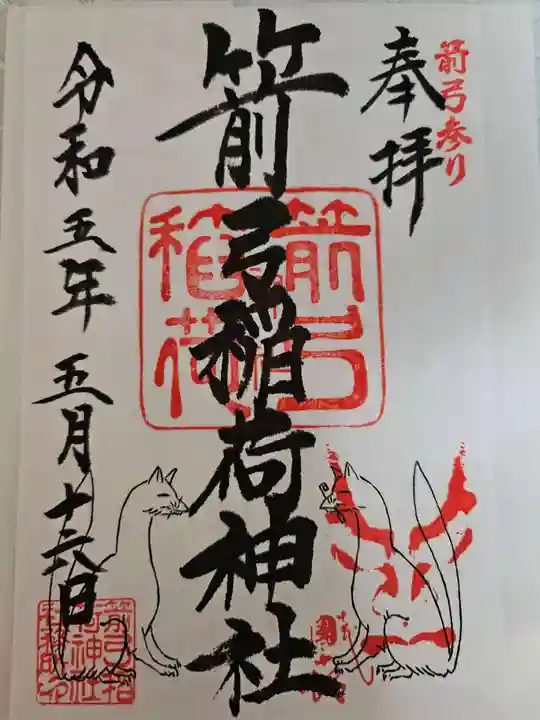 箭弓参り
奉拝
箭弓稲荷神社
箭弓稲荷
令和五年 五月十六日